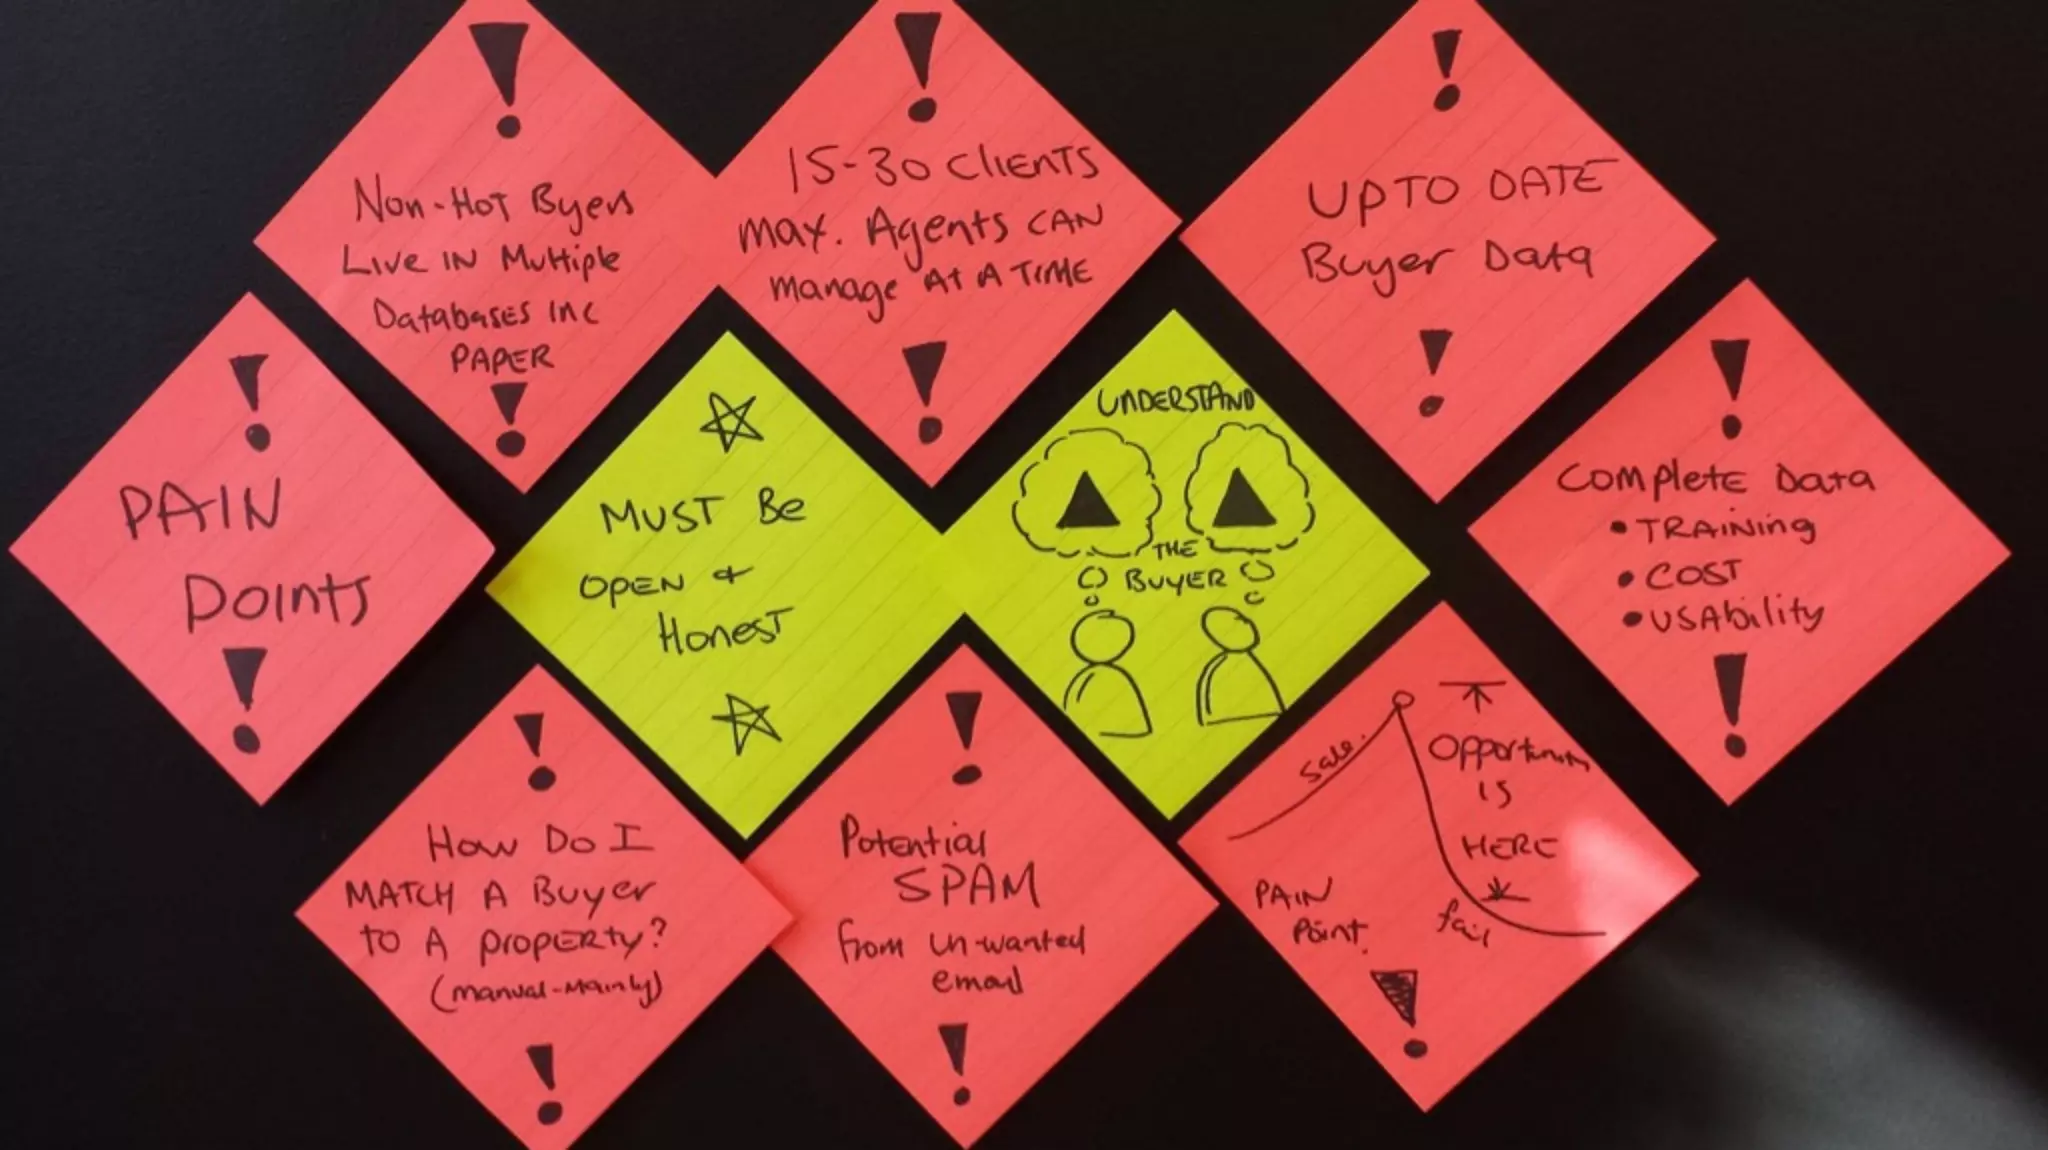 Non-Hot Byers
Live in Multiple
Databases inc
PAPER
15-30 clients
max. Agents can
manage at a time
UP TO DATE
Buyer Data
PAIN
Points
MUST Be
OPEN +
Honest
UNDERSTAND
THE
BUYER
Complete Data
• TRAINING
• COST
• USAbility
How Do I
MATCH A Buyer
to A property?
(manual-mainly)
Potential
SPAM
from un-wanted
email
Sale.
Opportunity
IS
HERE
PAIN
Point.
fail